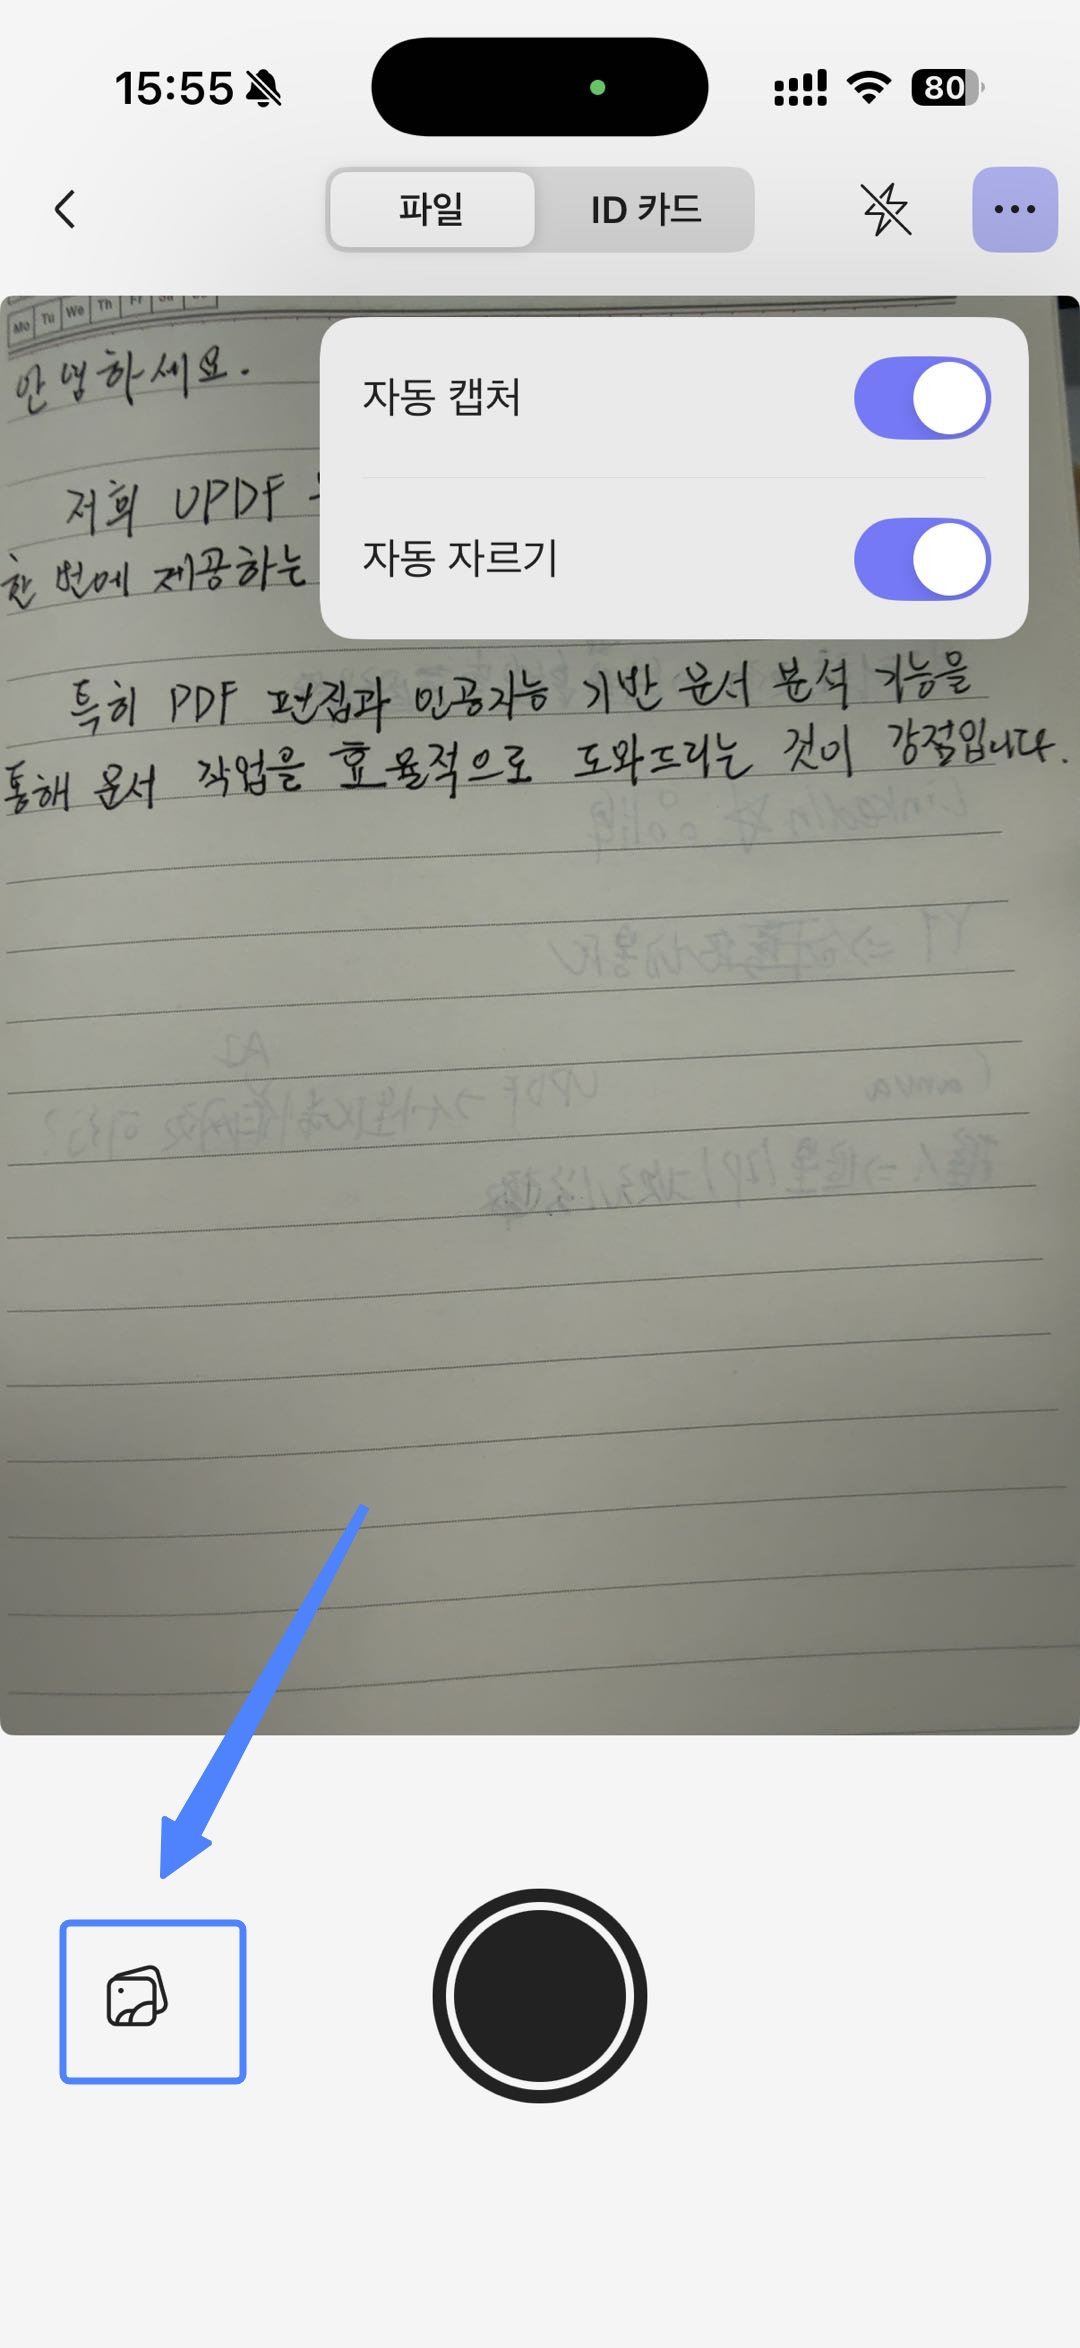 15:55
80
파일
ID 카드
Mo Tu We Th Fr Sa
안녕하세요.
자동 캡처
저희 UPDF
한 번에 제공하는
자동 자르기
특히 PDF 편집과 인공지능 기반 문서 분석 기능을
통해 문서 작업을 효율적으로 도와드리는 것이 강점입니다.
LinkedIn
Canva
UPDF
AI